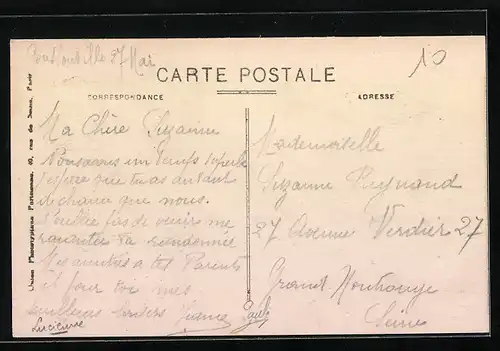 27 Mai
10
CARTE POSTALE
CORRESPONDANCE
ADRESSE
Ma Chère Suzanne
Nous avons un temps superbe
J'espère que tu as autant
de chance que nous.
N'oublie pas de venir me
raconter ta randonnée
Mes amitiés à tes Parents
et pour toi mes
meilleurs baisers Jeanne
Lucienne
Paule
Mademoiselle
Suzanne Reynaud
27 Avenue Verdier 27
Grand Montrouge
Seine